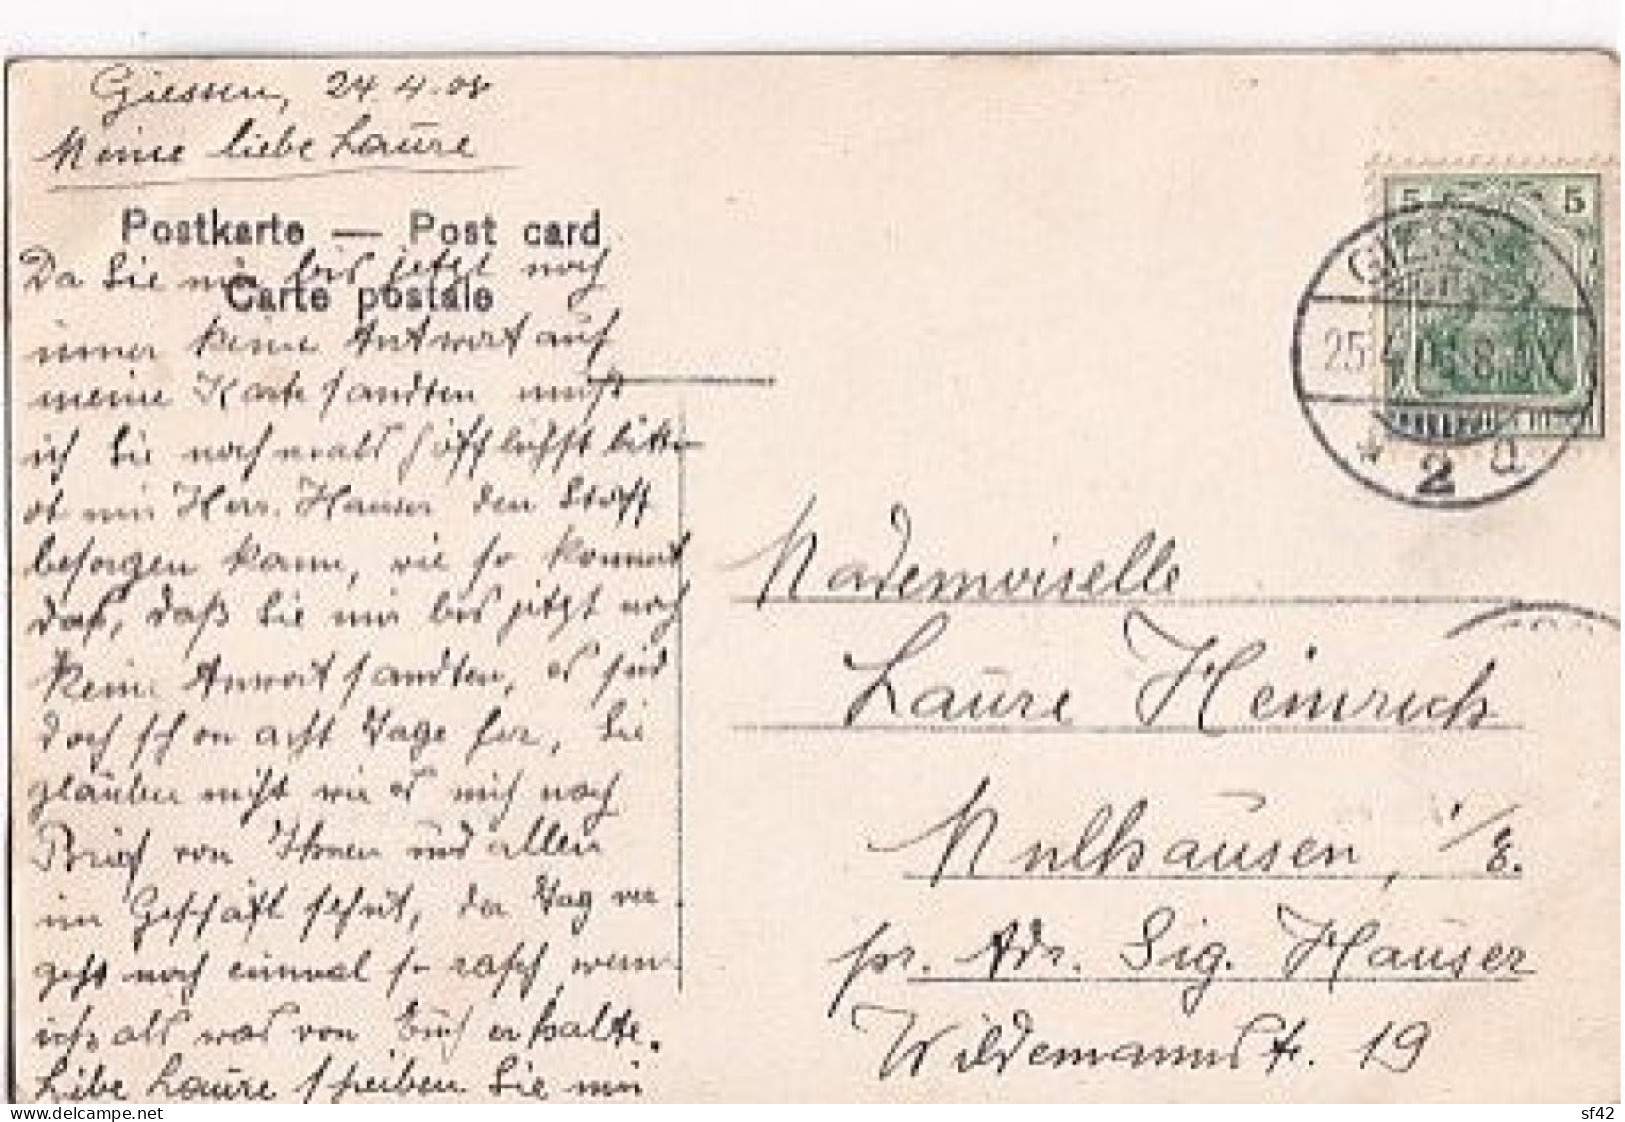 Giessen, 24.4.08
Meine liebe Laure
Postkarte — Post card
Carte postale
Da Sie mir bis jetzt noch
immer keine Antwort auf
meine Karte sandten muß
ich Sie nochmals höfflichst bitten
ob mir Herr. Hauser den Stoff
besorgen kann, wie so kommt
das, daß Sie mir bis jetzt noch
keine Anwort sandten, es sind
doch schon acht Tage her, Sie
glauben nicht wie es mich nach
Brief von Ihnen und allen
im Geschäft sehnt, der Tag ver
geht noch einmal so rasch wenn
ich als was von Euch erhalte.
Libe Laure schreiben Sie mir
5 5
GIESSEN
25.4. 8-9V
* 2 a
Mademoiselle
Laure Heinrich
Mulhausen, i/E.
pr. Adr. Sig. Hauser
Wildemannstr. 19
delcampe.net
sf42